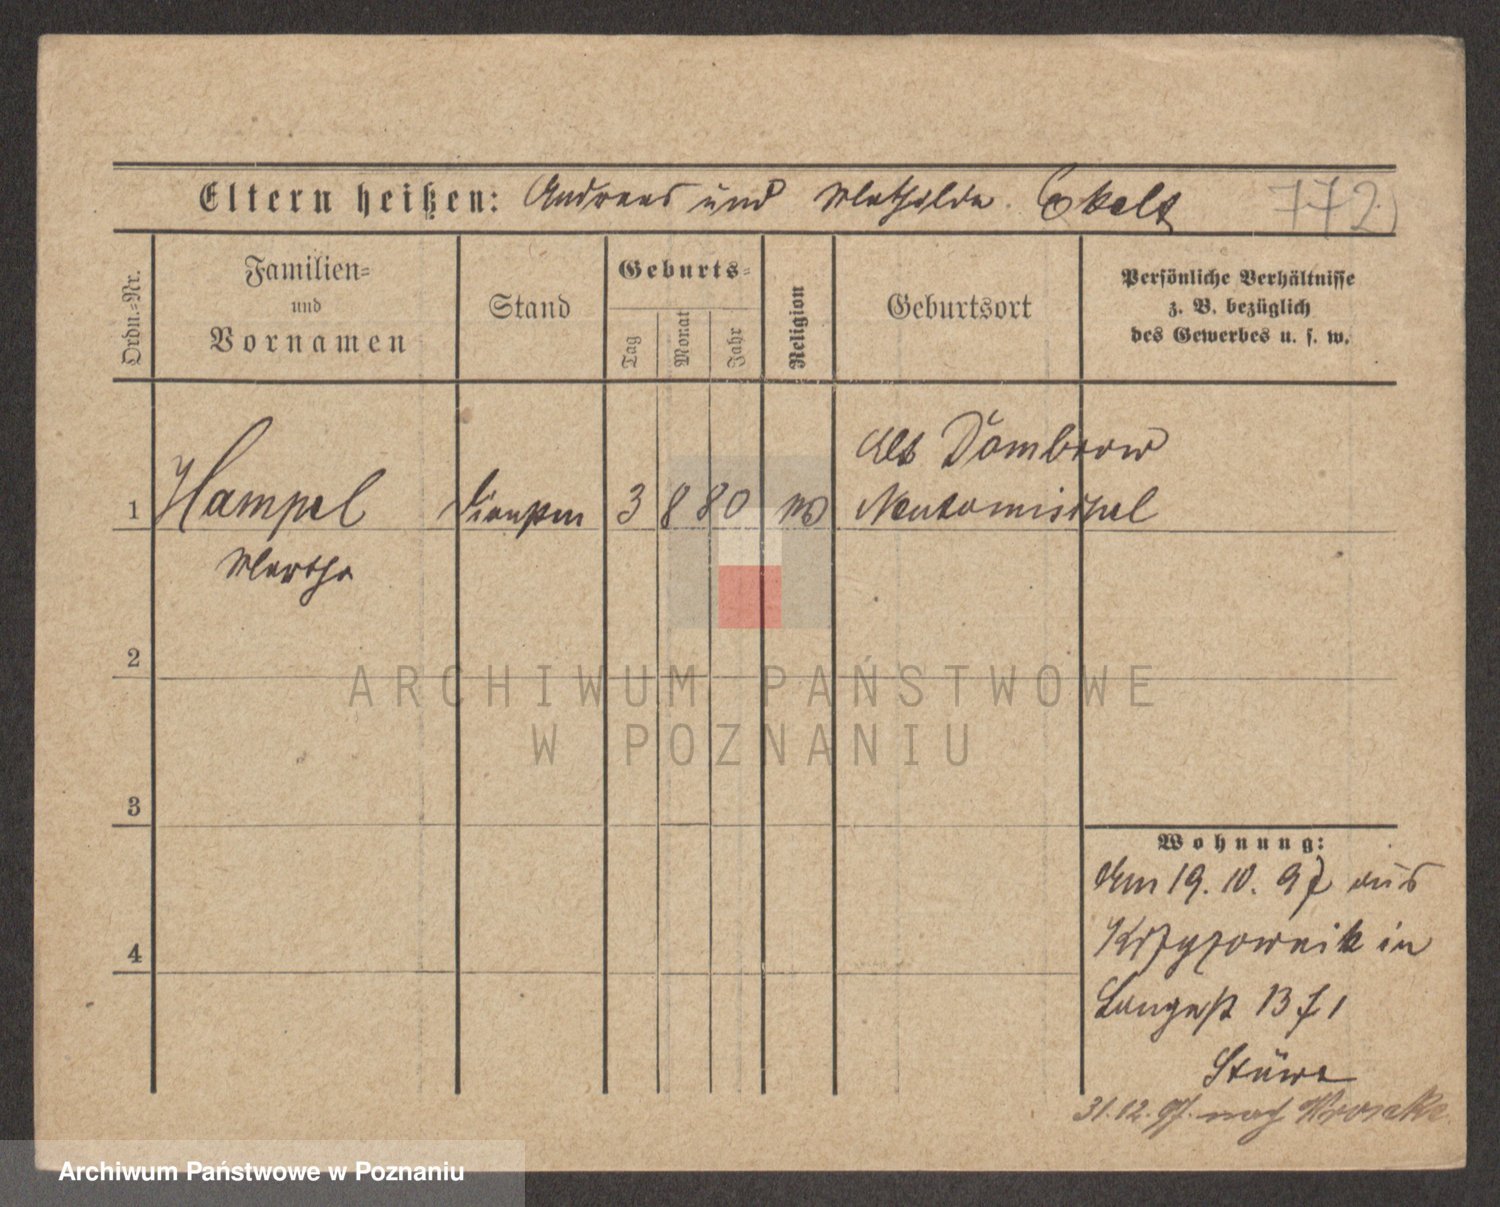 Eltern heißen: Andreas und Mathilde Ekelt 772
Ordn.-Nr.
Familien-
und
Vornamen
Stand
Geburts-
Tag
Monat
Jahr
Religion
Geburtsort
Persönliche Verhältnisse
z. B. bezüglich
des Gewerbes u. s. w.
Alt Dombrow
1 Hampel 3 8 80 Neutomischel
Martha
2
ARCHIWUM PAŃSTWOWE
W POZNANIU
3
Wohnung:
Am 19. 10. 97 aus
4 Krzyzownik in
Langestr 13 f 1
Stüwe
31.12.97. nach
Archiwum Państwowe w Poznaniu